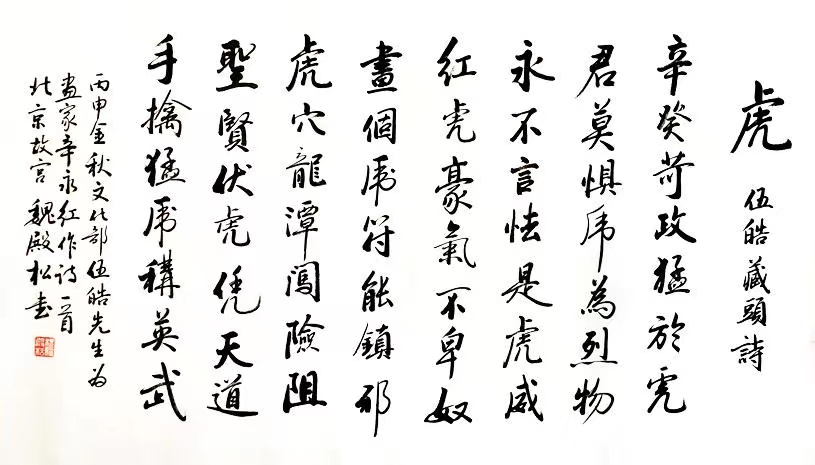 虎 伍皓藏頭詩
辛癸苛政猛於虎
君莫惧虎為烈物
永不言怯是虎威
红虎豪氣不卑奴
畫個虎符能鎮邪
虎穴龍潭闖險阻
聖賢伏虎凭天道
手擒猛虎稱英武
丙申金秋文化部伍皓先生为
画家辛永红作诗一首
北京故宫魏殿松书